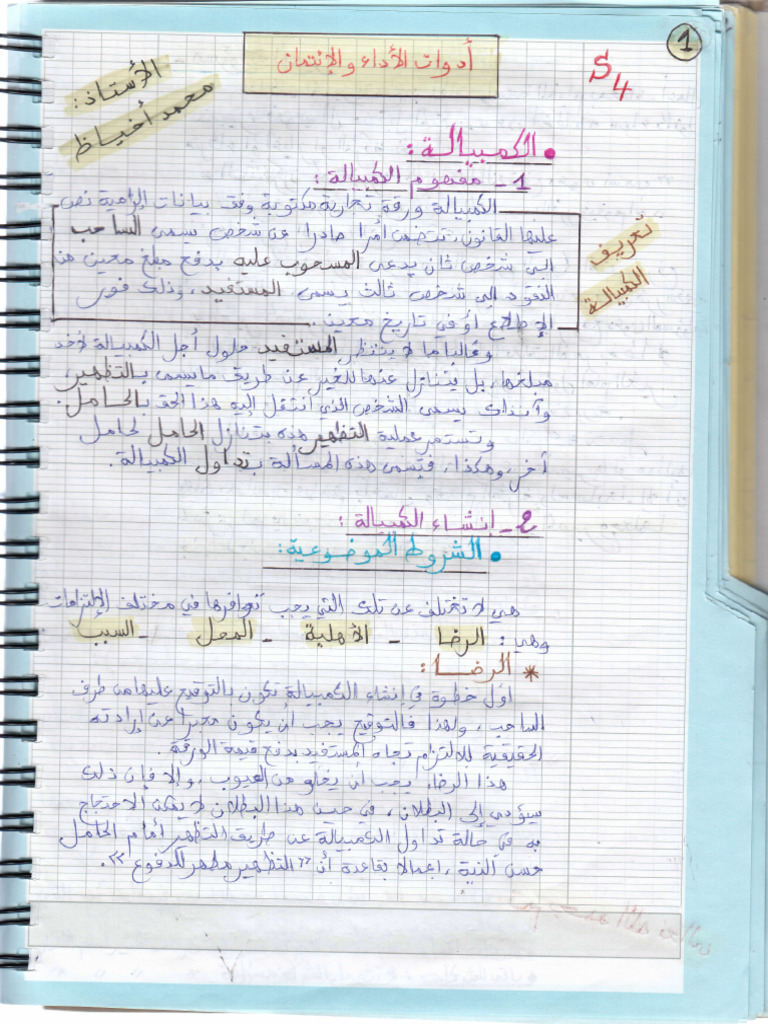 1
S4
أدوات الأداء والإئتمان
الأستاذ:
محمد أخياظ
• الكمبيالة:
1 - مفهوم الكمبيالة:
الكمبيالة ورقة تجارية مكتوبة وفق بيانات إلزامية نص
عليها القانون، تتضمن أمرا صادرا عن شخص يسمى الساحب
الى شخص ثان يدعى المسحوب عليه بدفع مبلغ معين من
النقود إلى شخص ثالث يسمى المستفيد، وذلك فور
الإطلاع أو في تاريخ معين.
تعريف
الكمبيالة
وغالبا ما لا ينتظر المستفيد حلول أجل الكمبيالة لأخد
مبلغها، بل يتنازل عنها للغير عن طريق ما يسمى بالتظهير،
وآنذاك يسمى الشخص الذي انتقل إليه هذا الحق بالحامل.
وتستمر عملية التظهير هذه بتنازل الحامل لحامل
آخر، وهكذا، فتسمى هذه المسألة بتداول الكمبيالة.
2 - إنشاء الكمبيالة:
• الشروط الموضوعية:
هي لا تختلف عن تلك التي يجب توافرها في مختلف الإلتزامات
وهي: الرضا - الأهلية - المحل - السبب
* الرضا:
أول خطوة في إنشاء الكمبيالة تكون بالتوقيع عليها من طرف
الساحب، ولهذا فالتوقيع يجب أن يكون معبرا عن إرادته
الحقيقية للالتزام تجاه المستفيد بدفع قيمة الورقة.
هذا الرضا يجب أن يخلو من العيوب، وإلا فإن ذلك
سيؤدي إلى البطلان، في حين هذا البطلان لا يمكن الاحتجاج
به في حالة تداول الكمبيالة عن طريق التظهير أمام الحامل
حسن النية، إعمالا بقاعدة أن "التظهير مطهر للدفوع".